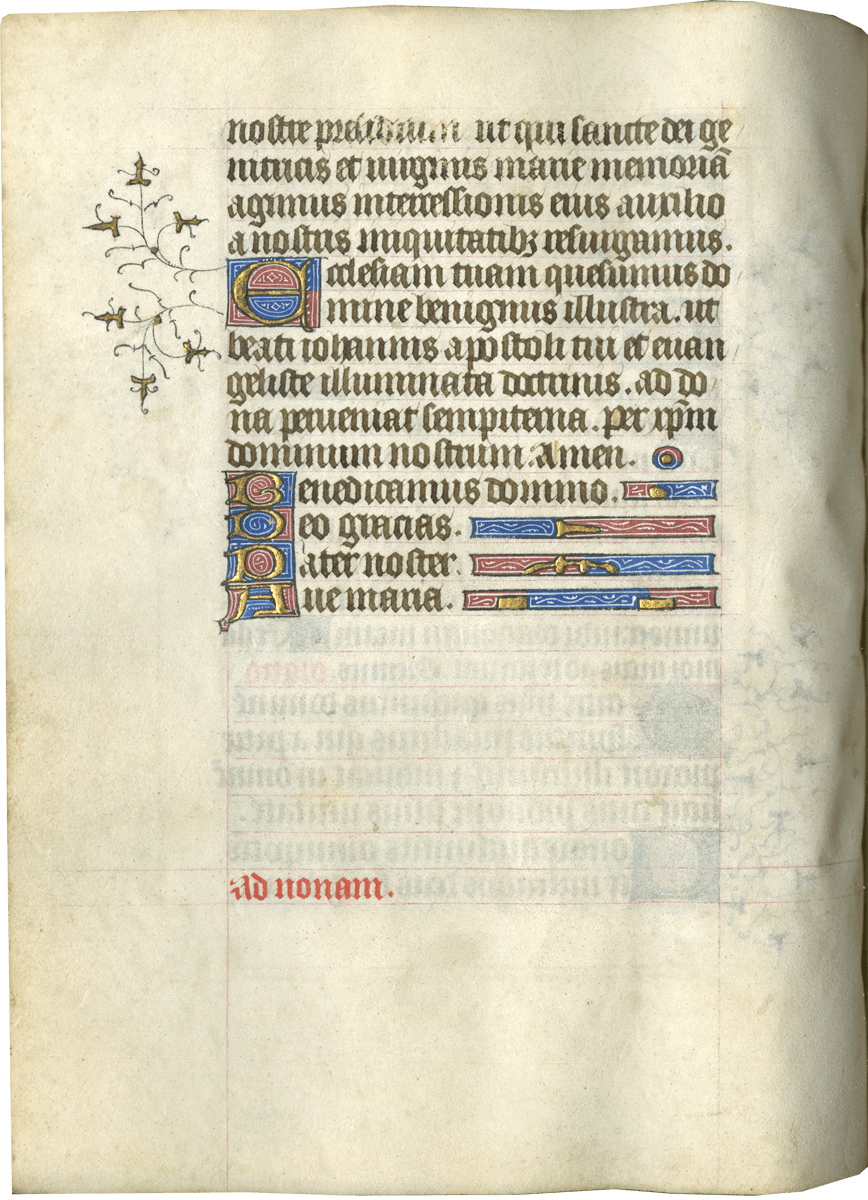 nostre presidium ut qui sancte dei ge
nitricis et uirginis marie memoriā
agimus intercessionis eius auxilio
a nostris iniquitatibꝫ resurgamus.
Ecclesiam tuam quesumus do
mine benignus illustra. ut
beati iohannis apostoli tui et euan
geliste illuminata doctrinis. ad do
na perueniat sempiterna. per xp̄m
dominum nostrum. amen.
Benedicamus domino.
Deo gracias.
Pater noster.
Aue maria.
ad nonam.